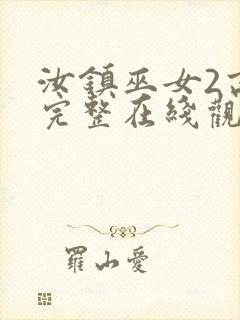 汝鎮巫女2
完整在綫觀
羅山愛